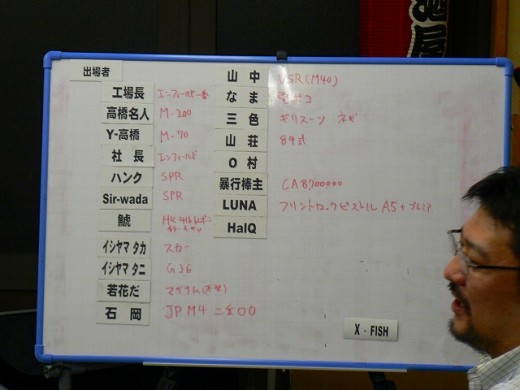 酒屋
出場者
工場長 エンフィールド一番
高橋名人 M-200
Y-高橋 M-70
社長 エンフィールド
ハンク SPR
Sir-wada SPR
鯱
イシヤマタカ スカー
イシヤマタニ G36
若花だ マグナム
石岡 JP M4 二金〇〇
山中 VSR(M40)
なま
三色
山荘 89式
O村
暴行棒主 CA8700000
LUNA フリントロックピストル A5+
HalQ
X-FISH